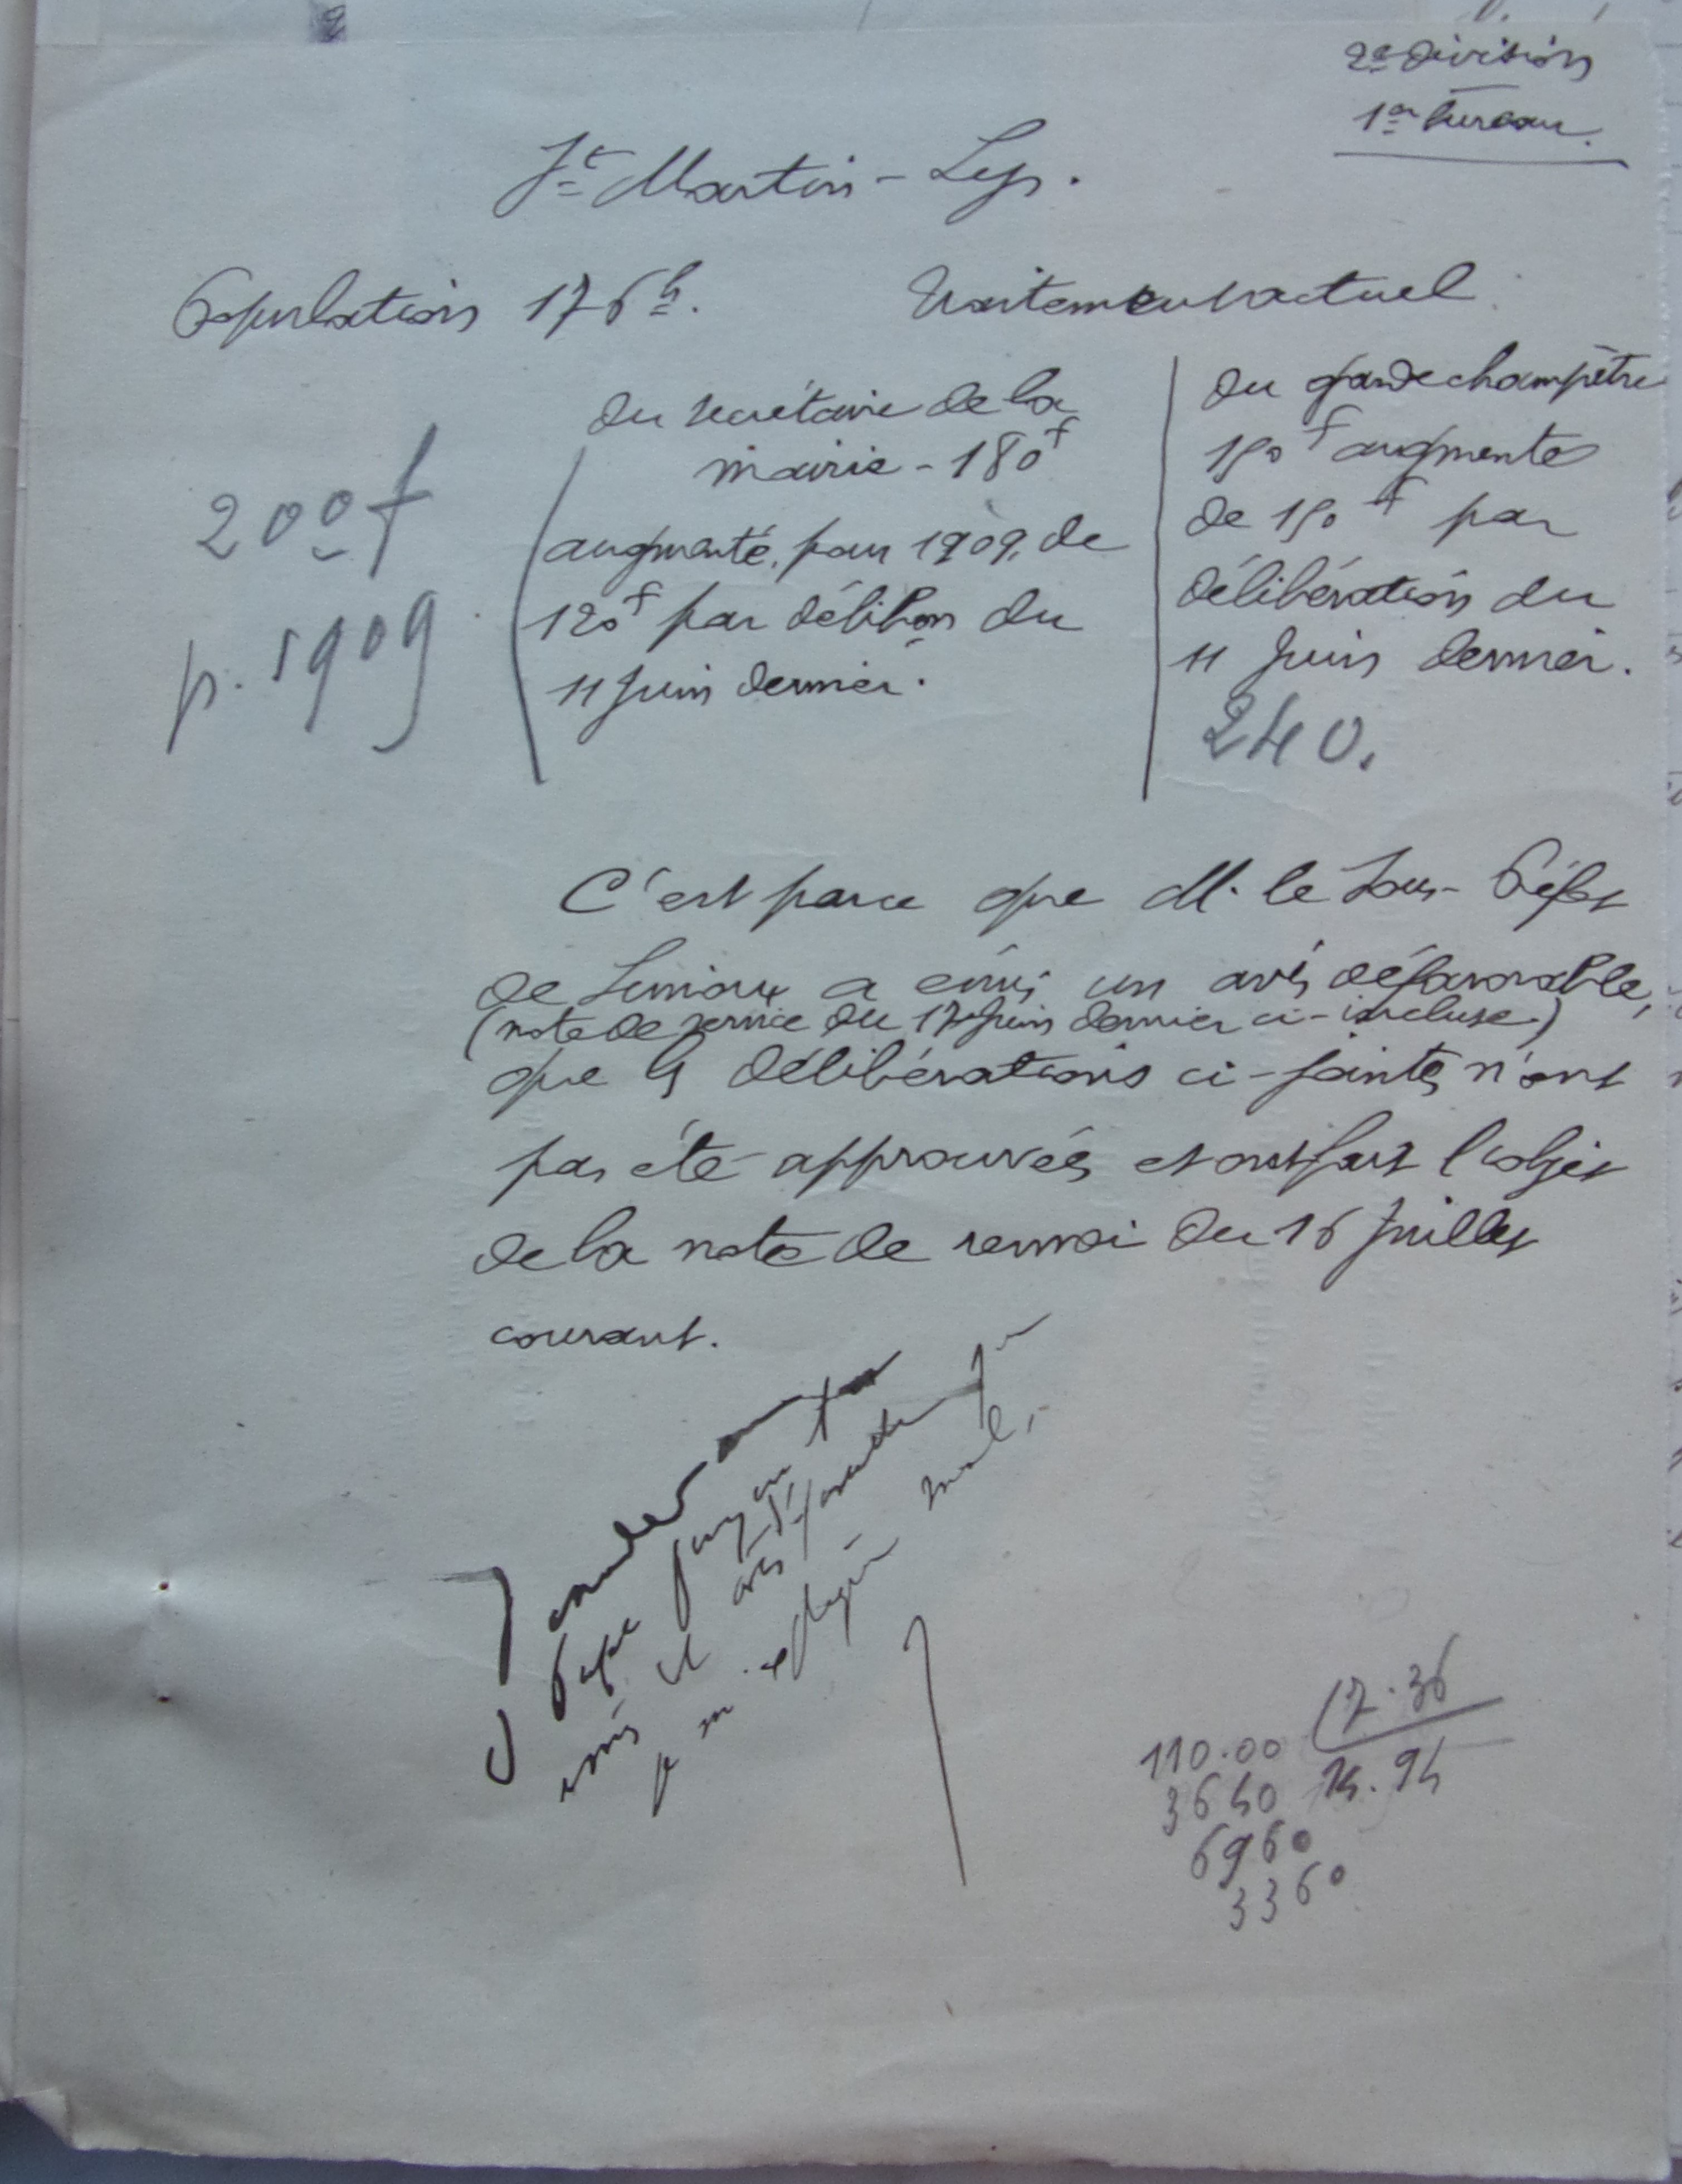 2e division
1er bureau.
St Martin-Lys.
Population 176 h.
Traitement actuel
du secrétaire de la
mairie - 180 f
augmenté, pour 1909, de
120 f par délibon du
11 Juin dernier.
200 f
p. 1909
du garde champêtre
150 f augmenté
de 150 f par
délibération du
11 Juin dernier.
240.
C'est parce que M. le Sous-Préfet
de Limoux a émis un avis défavorable,
(note de service du 17 Juin dernier ci-incluse)
que les délibérations ci-jointes n'ont
pas été approuvées et ont fait l'objet
de la note de renvoi du 16 Juillet
courant.
avis défavorable
mal
110.00 7.36
3640 14.94
6960
3360